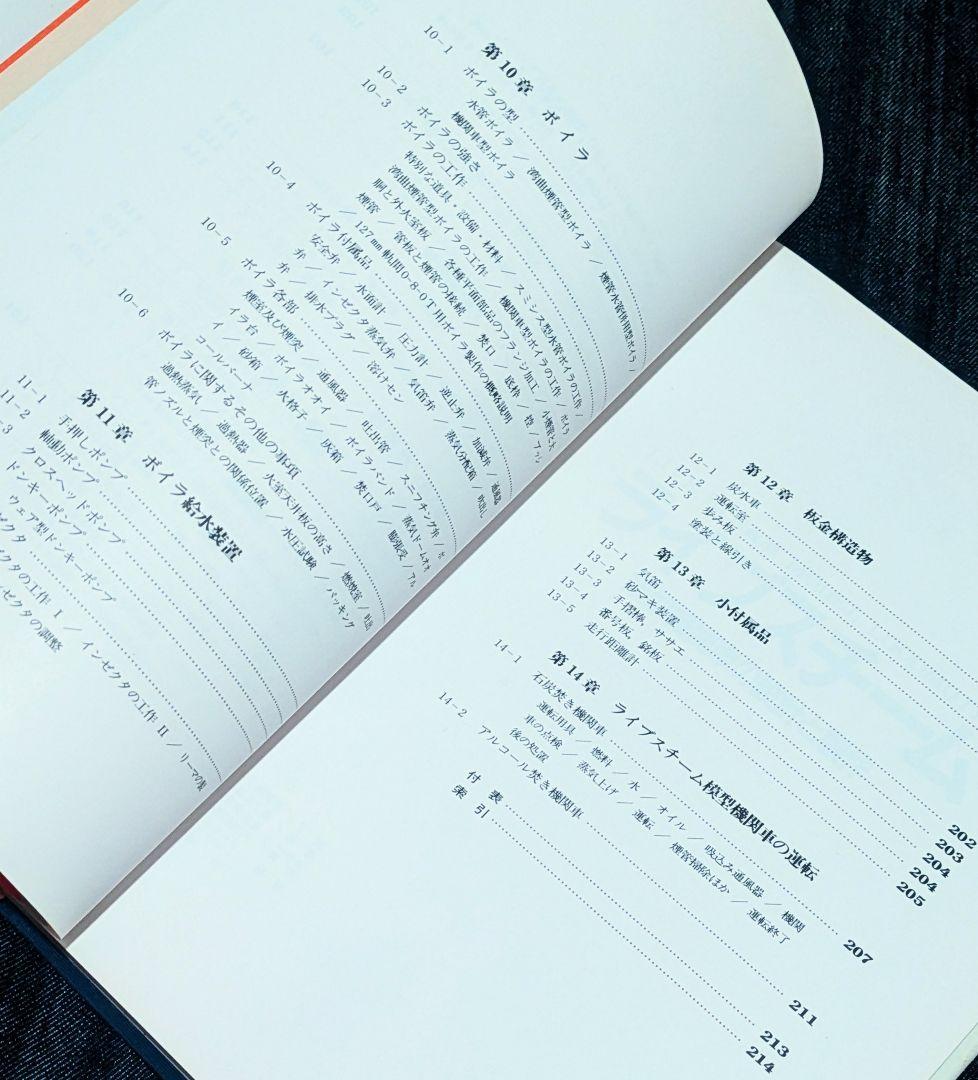 第10章 ボイラ
10-1 ボイラの型
水管ボイラ / 湾曲煙管型ボイラ / 煙管水管併用型ボイラ /
機関車型ボイラ
10-2 ボイラの強さ
10-3 ボイラの工作
特別な道具、設備、材料 / スミシス型水管ボイラの工作 /
湾曲煙管型ボイラの工作 / 機関車型ボイラの工作 / ボイラ
胴と外火室板 / 各種平面部品のフランジ加工 / 小煙管と大
煙管 / 管板と煙管の接続 / 焚口 / 底枠 / 控 / フラン
/ 127mm軌間0-8-0T用ボイラ製作の概略説明
10-4 ボイラ付属品
安全弁 / 水面計 / 圧力計 / 逆止弁 / 加減弁 / 通風器
弁 / インゼクタ蒸気弁 / 気笛弁 / 蒸気分配箱 / 吹出し
弁 / 排水プラグ / 溶けセン
10-5 ボイラ各部
煙室及び煙突 / 通風器 / 吐出管 / スニフチング弁 / ボ
イラ台 / ボイラオオイ / ボイラバンド / 蒸気ドームオオ
イ / 砂箱 / 火格子 / 灰箱 / 焚口戸 / 膨張受 / アル
コールバーナ
10-6 ボイラに関するその他の事項
過熱蒸気 / 過熱器 / 火室天井板の高さ / 燃焼室 / 吐出
管ノズルと煙突との関係位置 / 水圧試験 / パッキング
第11章 ボイラ給水装置
11-1 手押しポンプ
11-2 軸動ポンプ
-3 クロスヘッドポンプ
ドンキーポンプ
ウェア型ドンキーポンプ
ゼクタ
クタの工作 I / インゼクタの工作 II / リーマの製
ゼクタの調整
第12章 板金構造物
12-1 炭水車
12-2 運転室 202
12-3 歩み板 203
12-4 塗装と線引き 204
第13章 小付属品
13-1 気笛
13-2 砂マキ装置
13-3 手摺棒、ササエ
13-4 番号板、銘板 204
13-5 走行距離計 205
第14章 ライブスチーム模型機関車の運転
14-1 石炭焚き機関車 207
運転用具 / 燃料 / 水 / オイル / 吸込み通風器 / 機関
車の点検 / 蒸気上げ / 運転 / 煙管掃除ほか / 運転終了
後の処置
14-2 アルコール焚き機関車 211
付表 213
索引 214